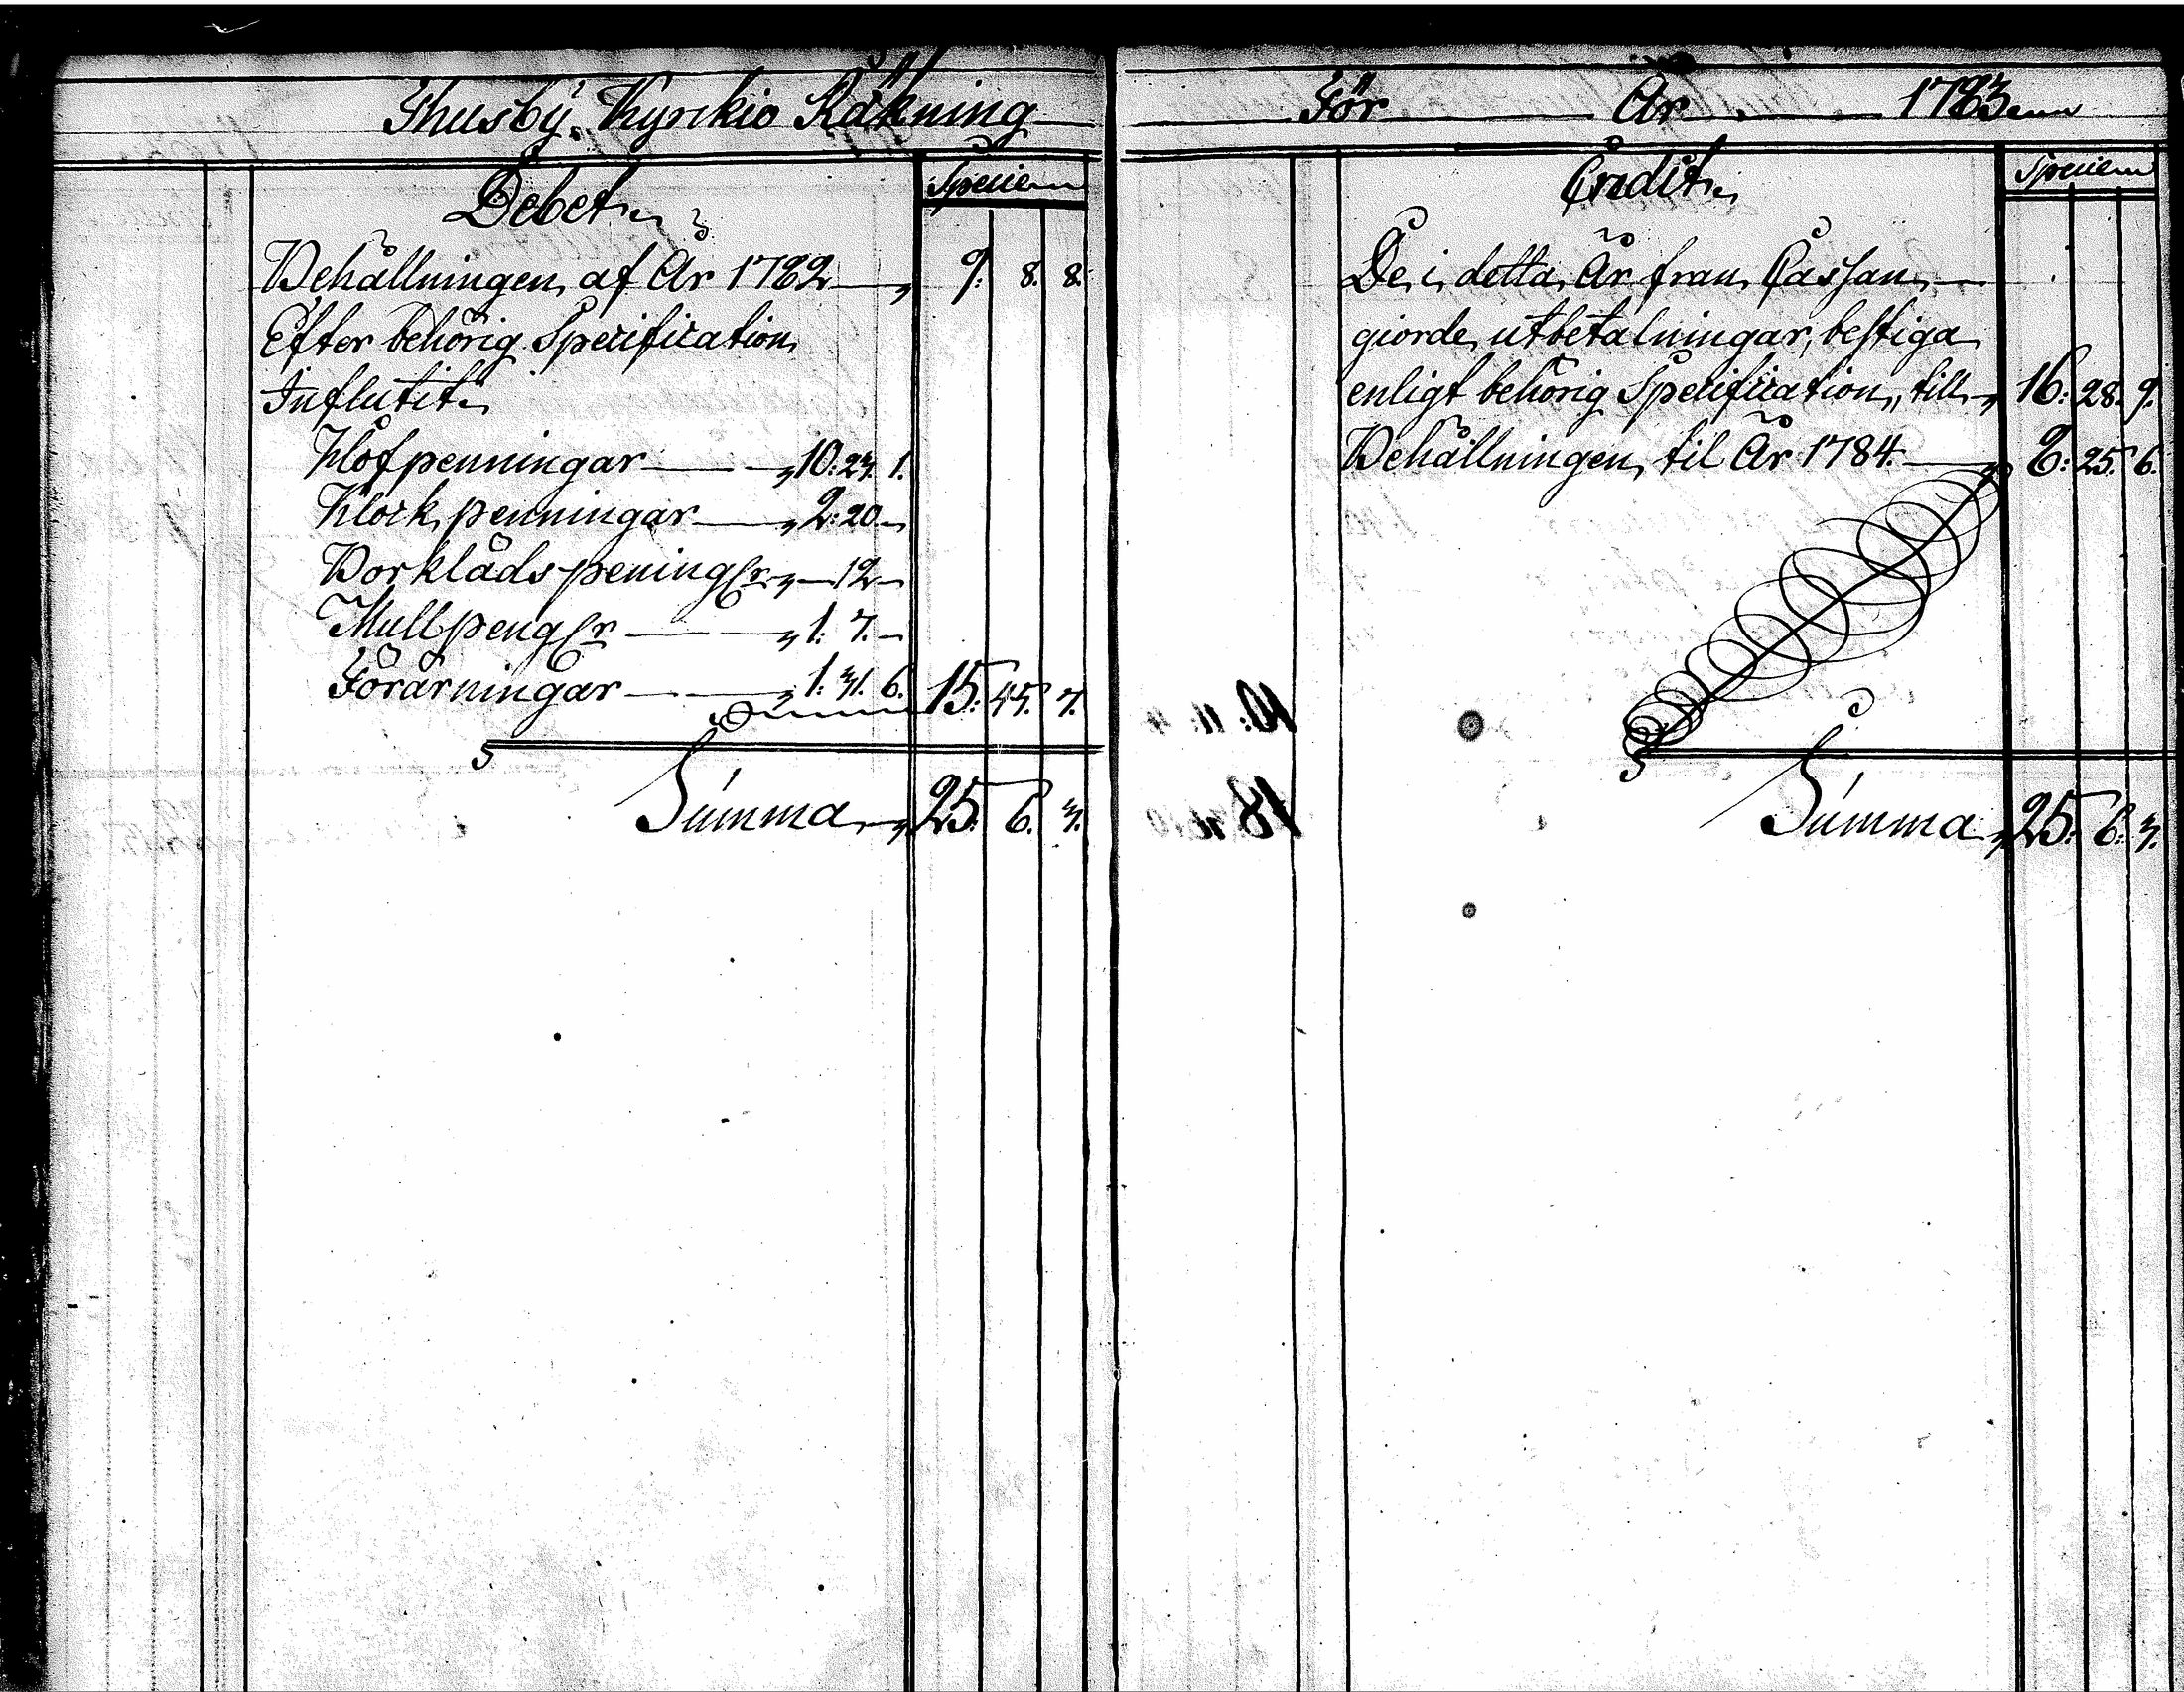 Thusby Kyrckio Räkning
Debet
Specie
Behållningen af År 1782 9. 8. 8.
Efter behörig Specification
Influtit
Håfpenningar 10: 23. 1.
Klock penningar 2: 20
Borklädspening 12
Mullpeng 1: 7.
Förärningar 1: 31. 6. 15: 45. 7.
Summa 25: 6. 3.
För År 1783
Credit
Specie
De i detta År från Cassan
giorde utbetalningar, bestiga
enligt behörig Specification, till 16: 28. 9.
Behållningen til År 1784. 8: 25. 6.
Summa 25: 6: 3.